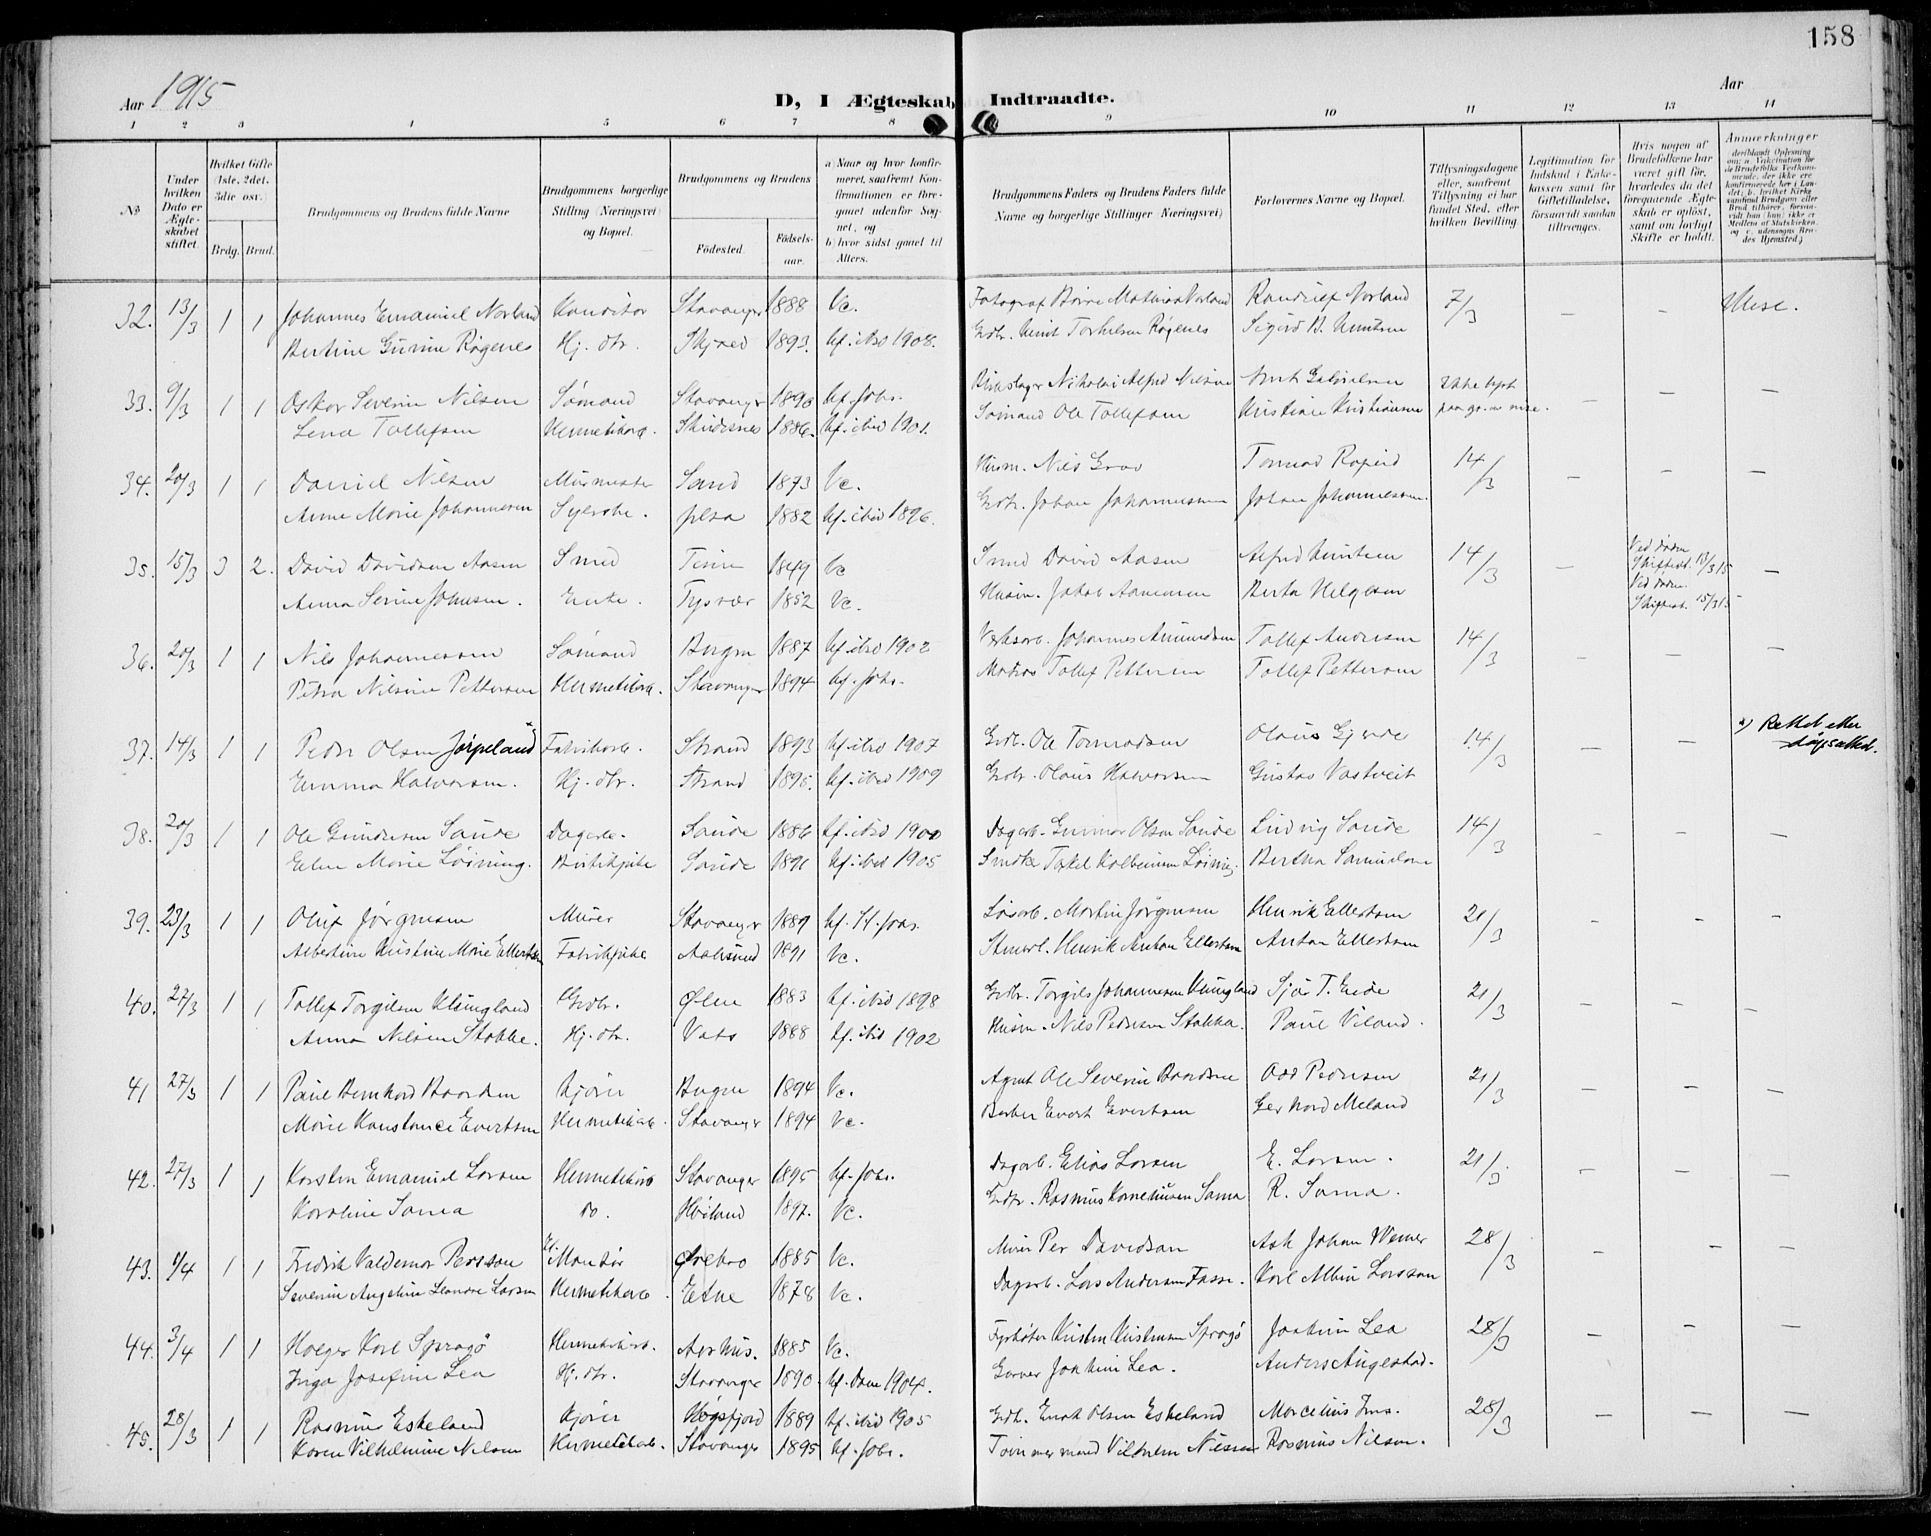 158
Aar 1915
Aar
D, I Ægteskab Indtraadte.
1 2 3 4 5 6 7 8 9 10 11 12 13 14
No
Under hvilken Dato er Ægteskabet stiftet.
Hvilket Gifte (1ste, 2det, 3die osv.
Brdg. Brud.
Brudgommens og Brudens fulde Navne
Brudgommens borgerlige Stilling (Næringsvei) og Bopæl.
Brudgommens og Brudens
Fødested.
Fødselsaar.
a) Naar og hvor konfirmeret, saafremt Konfirmationen er foregaaet udenfor Sognet, og
b) hvor sidst gaaet til Alters.
Brudgommens Faders og Brudens Faders fulde Navne og borgerlige Stillinger (Næringsvei)
Forlovernes Navne og Bopæl.
Tillysningsdagene eller, saafremt Tillysning ei har fundet Sted, efter hvilken Bevilling
Legitimation for Indskud i Enkekassen samt for Giftetilladelse, forsaavidt saadan tiltrænges.
Hvis nogen af Brudefolkene har været gift før, hvorledes da det foregaaende Ægteskab er opløst, samt om lovligt Skifte er holdt.
Anmerkninger
32. 13/3 1 1 Johannes Emanuel Norland Konditor Stavanger 1888 Vc. Fotograf Børre Mathias Norland Randulf Norland 7/3 - -
Bertine Gurine Røgenes Hj. dtr. Skjold 1893. kf. ibid 1908. Grdbr. Knut Torkelsen Røgenes Sigurd B. Knutsen
33. 9/3 1 1 Oskar Severin Nilsen Sømand Stavanger 1890 kf. Johs. Blikslager Nikolai Alfred Nilsen Knut Gabrielsen Ikke lyst - - -
Lena Tollefsen Hermetikarb. Skudesnes 1886. kf. ibid 1901. Sømand Ole Tollefsen Kristian Kristiansen
34. 20/3 1 1 Daniel Nilsen Murmester Sand 1873 Vc. Husm. Nils Grov 14/3 - - -
Anne Marie Johannesen Syerske. Jelsa 1882 kf. ibid 1896. Grdbr. Johan Johannessen Johan Johannessen.
35. 15/3 3 2. David Davidsen Aasen Smed Time 1849 Vc Smed David Aasen Alfred Knutsen 14/3 - Ved døden Skifteat. 13/3 15 -
Anna Serine Johnsen. Enke. Tysvær 1852 Vc. Husm. Jakob Berta Helgesen Ved døden. Skifteat. 15/3 15
36. 20/3 1 1 Nils Johannessen Sømand Bergen 1887 kf. ibid 1902 Johannes Amundsen Tollef Andersen 14/3 - - -
Petra Nilsine Pettersen Hermetikarb. Stavanger 1894 kf. Johs. Matros Tollef Pettersen Tollef Pettersen
37. 14/3 1 1 Peder Olsen Jørpeland* Fabrikarb. Strand 1893 kf. ibid 1907 Grdb. Ole Tormodsen Olaus Gjerde 14/3 - - *) Rettet etter dåpsattest.
Emma Halvorsen. Hj. dtr. Strand 1895. kf. ibid 1909 Grdbr. Olaus Halvorsen Gustav Vastveit
38. 20/3 1 1 Ole Gundersen Saude Dagarb. Saude 1886 kf. ibid 1900 Dagarb. Gunnar Olsen Saude Ludvig Saude 14/3 - - -
Elen Marie Løining. Butikpike Saude 1891 kf. ibid 1905 Bertha Samuelsen
39. 23/3 1 1 Oluf Jørgensen Murer Stavanger 1889 Løsarb. Martin Jørgensen Henrik Ellertsen 21/3 - - -
Albertine Kristine Marie Ellertsen Fabrikpike Aalesund 1891 Vc. Henrik Anton Ellertsen Anton Ellertsen
40. 27/3 1 1 Tollef Torgilsen Klungland Grdbr. Ølen 1883 kf. ibid 1898 Grdbr. Torgils Johannesen Klungland Sjur T. Eide 21/3 - - -
Anna Nilsen Stakke. Hj. dtr. Vats 1888 kf. ibid 1902 Husm. Nils Pedersen Stakka. Paul Viland.
41 27/3 1 1 Paul Bernhard Baardsen Kjører Bergen 1894 Vc. Agent Ole Severin Baardsen Odd Pedersen 21/3 - - -
Marie Konstance Evertsen Hermetikarb. Stavanger 1894 Vc. Evert Evertsen Gerhard Meland
42. 27/3 1 1 Karsten Emanuel Larsen Hermetikarb Stavanger 1895 kf. Johs. Dagarb. Elias Larsen E. Larsen. 21/3. - - -
Karoline Soma do. Høiland 1897. Vc. Grdbr. Rasmus Korneliussen Soma R. Soma.
43. 1/4 1 1 Fredrik Valdemar Persson El. Montør Ørebro 1885 Vc. Murer Per Davidson Ask Johan Werner 28/3 - - -
Severin Angeline Leandre Larsen Hermetikarb. Etne 1878 Vc. Dagarb. Lars Andersen Fasse. Karl Albin Larsson
44. 3/4 1 1 Holger Karl Sprogø Hermetikarb. Aarhus. 1885 Vc. Fyrbøter Kristen Kristensen Sprogø Joakim Lea 28/3 - - -
Inga Josefine Lea Hj. dtr. Stavanger 1890. kf. Dom 1904. Garver Joakim Lea. Anders Augestad.
45. 28/3 1 1 Rasmus Eskeland Kjører Høgsfjord 1889 kf. ibid 1905 Grdb. Enok Olsen Eskeland Marcelius Ims. 28/3 - - -
Karen Vilhelmine Nilsen Hermetikarb. Stavanger 1895 kf. Johs. Tømmermand Vilhelm Nilsen Rasmus Nilsen.